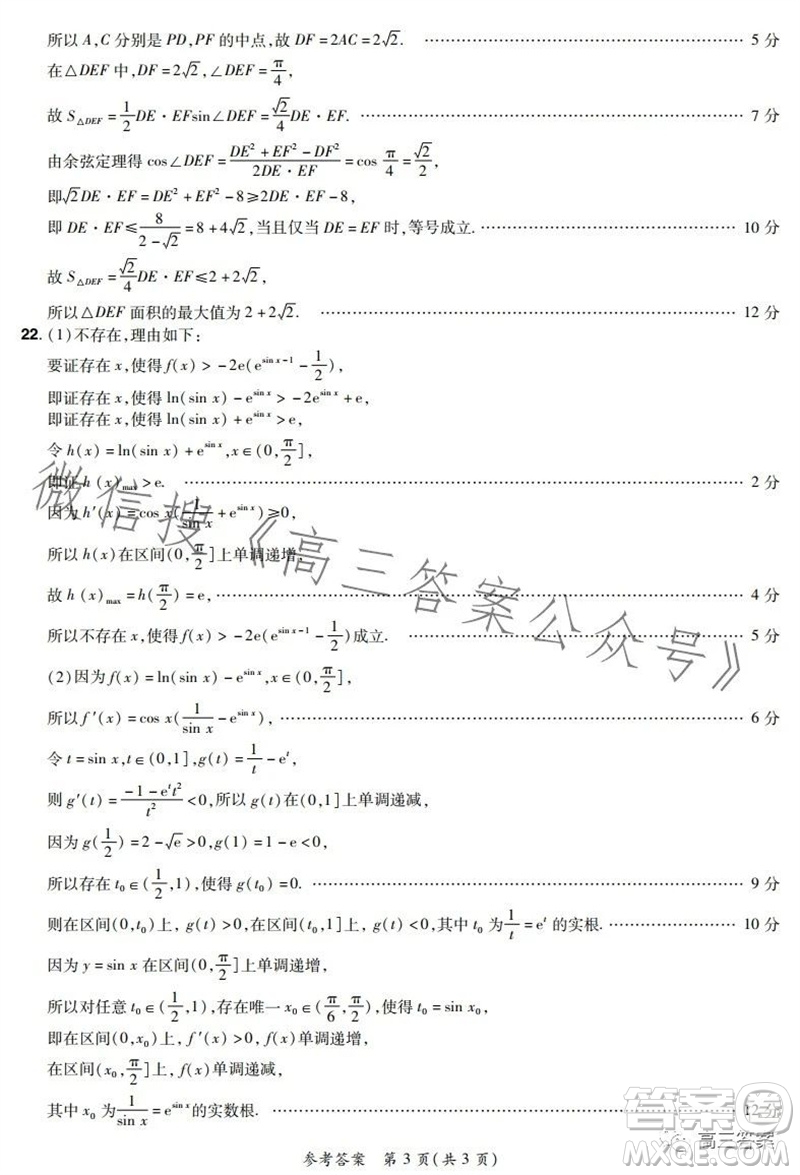 所以 A,C 分别是 PD,PF 的中点,故 DF=2AC=2√2. …… 5 分
在△DEF 中,DF=2√2,∠DEF=π/4,
故 S△DEF=1/2 DE·EFsin∠DEF=√2/4 DE·EF. …… 7 分
由余弦定理得 cos∠DEF=(DE²+EF²-DF²)/(2DE·EF)=cos π/4=√2/2,
即√2DE·EF=DE²+EF²-8≥2DE·EF-8,
即 DE·EF≤8/(2-√2)=8+4√2,当且仅当 DE=EF 时,等号成立. …… 10 分
故 S△DEF=√2/4 DE·EF≤2+2√2,
所以△DEF 面积的最大值为 2+2√2. …… 12 分
22. (1)不存在,理由如下:
要证存在 x,使得 f(x)>-2e(e^(sin x-1)-1/2),
即证存在 x,使得 ln(sin x)-e^(sin x)>-2e^(sin x)+e,
即证存在 x,使得 ln(sin x)+e^(sin x)>e,
令 h(x)=ln(sin x)+e^(sin x),x∈(0,π/2],
即证 h(x)max>e. …… 2 分
因为 h′(x)=cos x(1/sin x+e^(sin x))≥0,
所以 h(x)在区间(0,π/2]上单调递增,
故 h(x)max=h(π/2)=e, …… 4 分
所以不存在 x,使得 f(x)>-2e(e^(sin x-1)-1/2)成立. …… 5 分
(2)因为 f(x)=ln(sin x)-e^(sin x),x∈(0,π/2],
所以 f′(x)=cos x(1/sin x-e^(sin x)), …… 6 分
令 t=sin x,t∈(0,1],g(t)=1/t-e^t,
则 g′(t)=(-1-e^t t²)/t²<0,所以 g(t)在(0,1]上单调递减,
因为 g(1/2)=2-√e>0,g(1)=1-e<0,
所以存在 t₀∈(1/2,1),使得 g(t₀)=0. …… 9 分
则在区间(0,t₀)上, g(t)>0,在区间(t₀,1]上, g(t)<0,其中 t₀ 为 1/t=e^t 的实根. …… 10 分
因为 y=sin x 在区间(0,π/2]上单调递增,
所以对任意 t₀∈(1/2,1),存在唯一 x₀∈(π/6,π/2),使得 t₀=sin x₀,
即在区间(0,x₀)上, f′(x)>0, f(x)单调递增,
在区间(x₀,π/2]上, f(x)单调递减,
其中 x₀ 为 1/sin x=e^(sin x)的实数根. …… 12 分
参考答案 第 3 页(共 3 页)
微信搜《高三答案公众号》
高三答案
答案圈
MXQE.COM